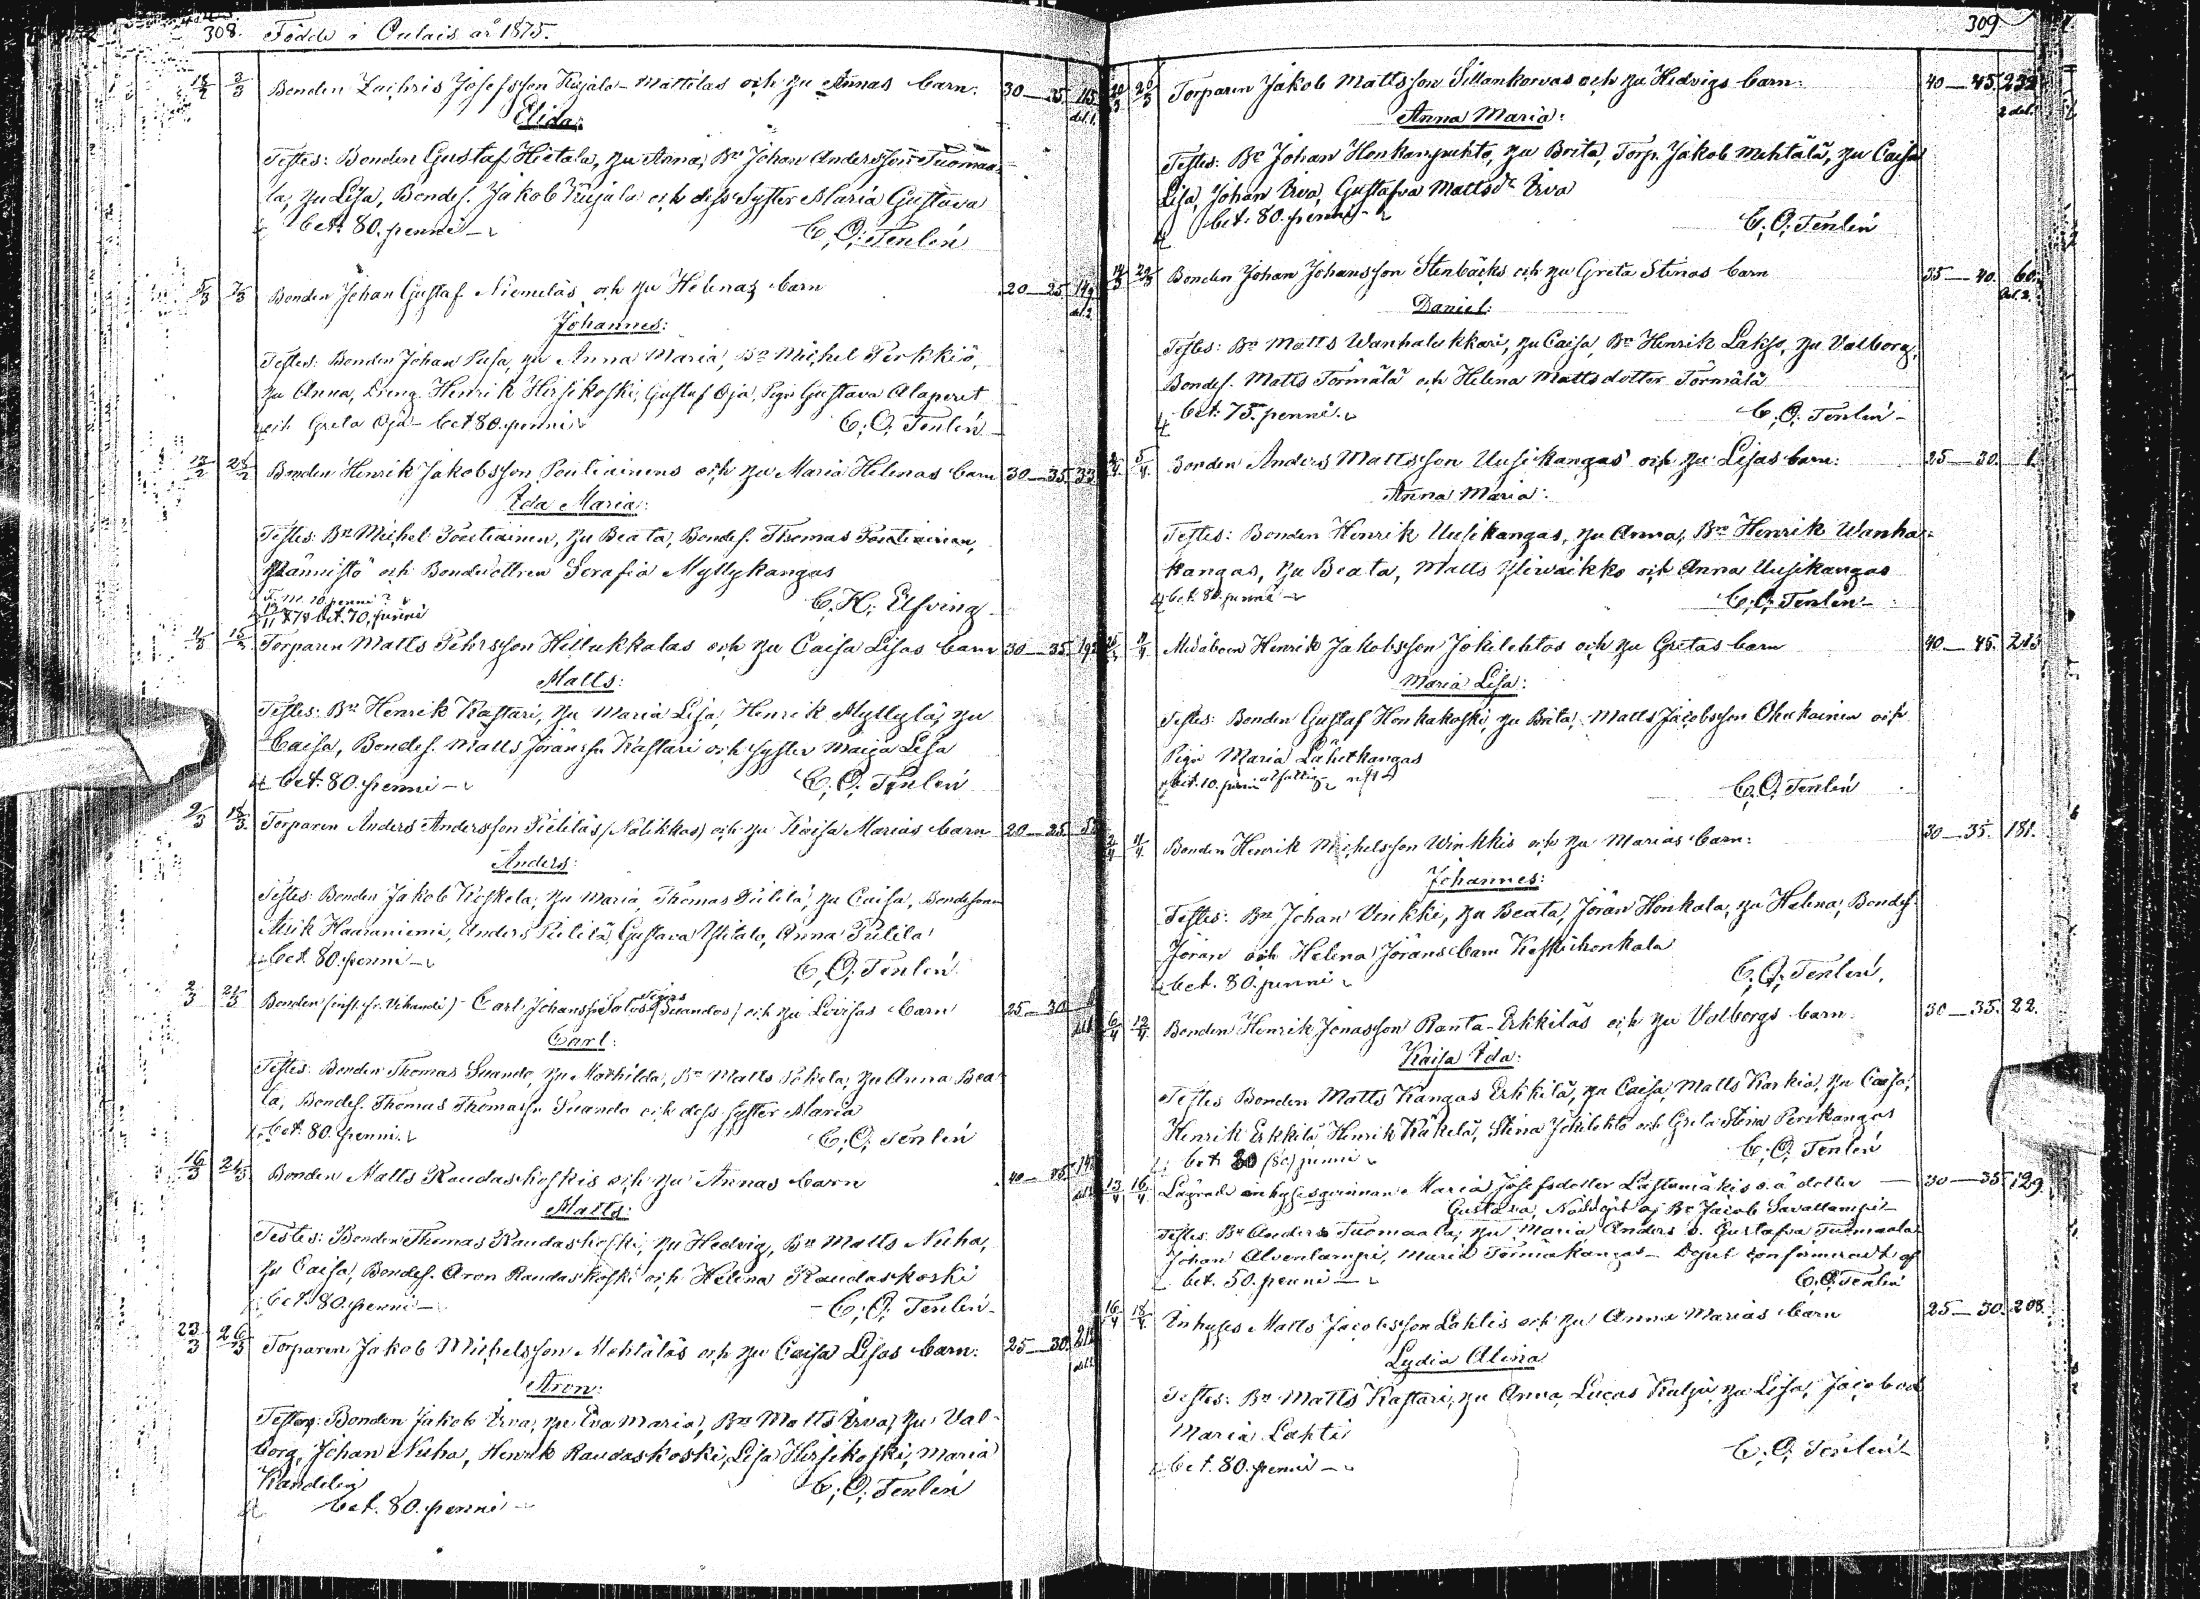 308. Födde i Oulais år 1875.
18/2 2/3 Bonden Zachris Josefsson Kujala-Mattilas och Hu Annas barn: 30—35 115
del. 1.
Elida:
Testes: Bonden Gustaf Hietala, Hu Anna, Bn Johan Andersson Tuomaa-
la, Hu Lisa, Bondes. Jakob Kujala och dess Syster Maria Gustava
bet. 80. penni
C. O. Tenlén
5/3 7/3 Bonden Johan Gustaf Niemeläs och Hu Helenas barn 20—25
del. 2.
Johannes:
Testes: Bonden Johan Pusa, Hu Anna Maria, Bn Michel Perkkiö,
Hu Anna, Dreng Henrik Hirsikoski, Gustaf Oja, Pign Gustava Alaperet
och Greta Oja bet 80. penni
C. O. Tenlén
Bonden Henrik Jakobsson Poutiainens och Hu Maria Helenas barn 30—35. 33
Ida Maria:
Testes: Bn Michel Poutiainen, Hu Beata, Bondes. Thomas Poutiainen,
Männistö och Bondedottren Serafia Myllykangas
10 penni
bet. 70. penni
C. H. Elfving
Torparen Matts Pehrsson Hillukkalas och Hu Caisa Lisas barn 30—35. 192
Matts:
Testes: Bn Henrik Kastari, Hu Maria Lisa, Henrik Myllylä, Hu
Caisa, Bondes. Matts Jöranss. Kastari och syster Maija Lisa
bet. 80. penni
C. O. Tenlén
9/3 Torparen Anders Andersson Pieliläs (Nalikkas) och Hu Kaisa Marias barn 20—25.
Anders:
Testes: Bonden Jakob Koskela, Hu Maria, Thomas Pielilä, Hu Caisa, Bondesonen
Isik Haaraniemi, Anders Pielilä, Gustava Ylitalo, Anna Pielilä
bet. 80. penni
C. O. Tenlén
2/3 21/3 Bonden Carl Johansson Salos (Suandos) och Hu Lovisas barn 25—30
Carl:
Testes: Bonden Thomas Suando, Hu Mathilda, Bn Matts Jokela, Hu Anna Bea-
ta, Bondes. Thomas Thomass. Suando och dess syster Maria
bet. 80. penni.
C. O. Tenlén
16/3 Bonden Matts Raudaskoskis och Hu Annas barn 40—45
Matts:
Testes: Bonden Thomas Raudaskoski, Hu Hedvig, Bn Matts Niiha,
Hu Caisa, Bondes. Aron Raudaskoski och Helena Raudaskoski
bet. 80. penni
C. O. Tenlén
23/3 26/3 Torparen Jakob Michelsson Mehtäläs och Hu Caisa Lisas barn: 25—30.
Aron:
Testes: Bonden Jakob Irva, Hu Eva Maria, Bn Matts Irva, Hu Val-
borg, Johan Niiha, Henrik Raudaskoski, Lisa Hirsikoski, Maria
Kandelin
C. O. Tenlén
bet. 80. penni
309
Torparen Jakob Mattsson Sillankorvas och Hu Hedvigs barn: 40—45. 232
2 del.
Anna Maria:
Testes: Bn Johan Honkanpuhto, Hu Brita, Torp. Jakob Mehtälä, Hu Caisa
Lisa, Johan Irva, Gustafva Mattsdr Irva
bet. 80. penni
C. O. Tenlén
Bonden Johan Johansson Stenbäcks och Hu Greta Stinas barn 35—40. 60
del. 2.
Daniel:
Testes: Bn Matts Wanhalukkari, Hu Caisa, Bn Henrik Lakso, Hu Valborg,
Bondes. Matts Törmälä och Helena Mattsdotter Törmälä
bet. 75. penni.
C. O. Tenlén
5/4 Bonden Anders Mattsson Uusikangas och Hu Lisas barn: 25—30. 1.
Anna Maria:
Testes: Bonden Henrik Uusikangas, Hu Anna, Bn Henrik Wanha-
kangas, Hu Beata, Matts Yliwaikko och Anna Uusikangas
bet. 80. penni
C. O. Tenlén
Henrik Jakobsson Jokilehtos och Hu Gretas barn 40—45. 213
Maria Lisa:
Testes: Bonden Gustaf Honkakoski, Hu Brita, Matts Jacobsson Ohukainen och
Pign Maria Lähetkangas
bet. 10. penni
C. O. Tenlén
Bonden Henrik Michelsson Winkkis och Hu Marias barn: 30—35. 181.
Johannes:
Testes: Bn Johan Vinkki, Hu Beata, Jöran Honkala, Hu Helena, Bondes.
Jöran och Helena Jörans barn Keskihonkala
bet. 80. penni
C. O. Tenlén.
6/4 12/4 Bonden Henrik Jonasson Ranta-Erkkiläs och Hu Valborgs barn. 30—35. 22.
Kaisa Ida:
Testes Bonden Matts Kangas Erkkilä, Hu Caisa, Matts Karkio, Hu Caisa,
Henrik Erkkilä Henrik Käkelä, Stina Jokilehto och Greta Stina Perikangas
bet 80 (80) penni
C. O. Tenlén
13/4 16/4 Lägrade inhysesqvinnan Maria Josefsdotter Lastumäkis o. ä dotter 30—35 129.
Gustava, Nöddöpt af Bn Jacob Savallampi
Testes: Bn Anders Tuomaala, Hu Maria Anders o. Gustafva Tuomaala
Johan Alvenlampi, Maria Törmäkangas Dopet confirmeradt af
bet. 50. penni
C. O. Tenlén
16/4 18/4 Inhyses Matts Jacobsson Lahtis och Hu Anna Marias barn 25—30. 208
Lydia Alina
Testes: Bn Matts Kastari, Hu Anna, Lucas Kulju, Hu Lisa, Jacob och
Maria Lahti
bet. 80. penni
C. O. Tenlén